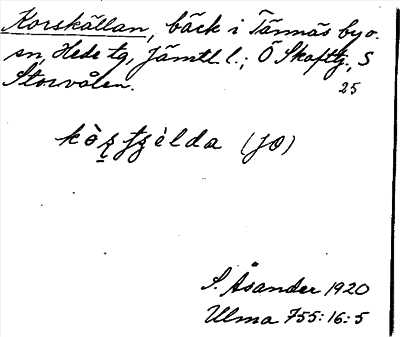 Korskällan, bäck i Tännäs by o.
sn, Hede tg, Jämtl. l.; Ö Skaftg., S
Storvålen. 25
(JO)
S. Åsander 1920
Ulma 755:16:5